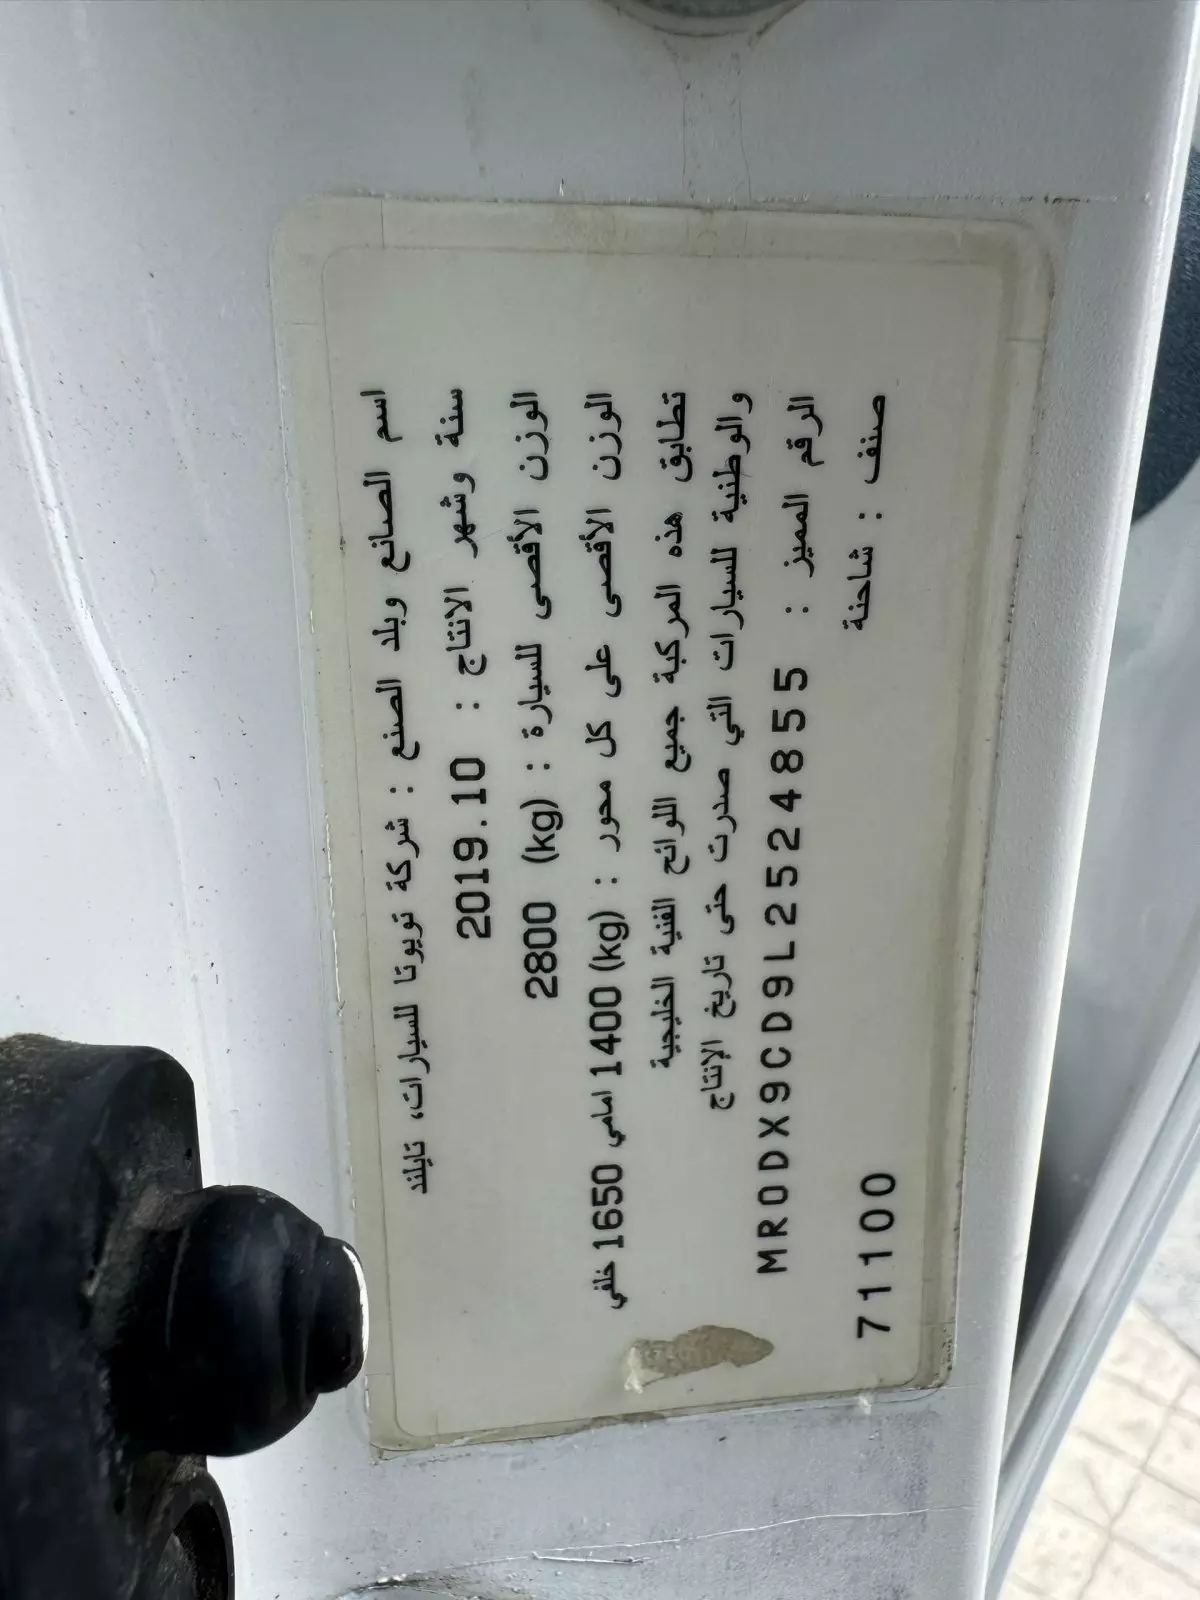 اسم الصانع وبلد الصنع : شركة تويوتا للسيارات، تايلند
سنة وشهر الانتاج : 2019.10
الوزن الأقصى للسيارة : (kg) 2800
الوزن الأقصى على كل محور : (kg) 1400 امامي 1650 خلفي
تطابق هذه المركبة جميع اللوائح الفنية الخليجية
والوطنية للسيارات التي صدرت حتى تاريخ الإنتاج
الرقم المميز : MR0DX9CD9L2524855
صنف : شاحنة 71100